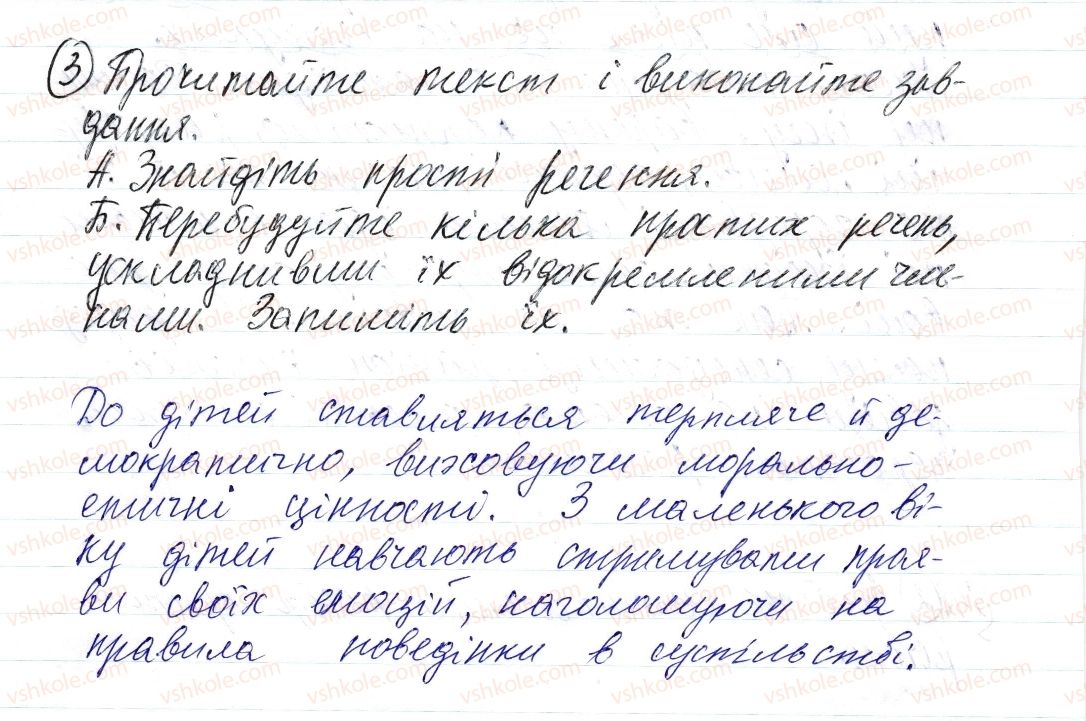 3 Прочитайте текст і виконайте зав-
дання.
А. Знайдіть прості речення.
Б. Перебудуйте кілька простих речень,
ускладнивши їх відокремленими чле-
нами. Запишіть їх.
До дітей ставляться терпляче й де-
мократично, виховуючи морально-
етичні цінності. З маленького ві-
ку дітей навчають стримувати проя-
ви своїх емоцій, наголошуючи на
правила поведінки в суспільстві.